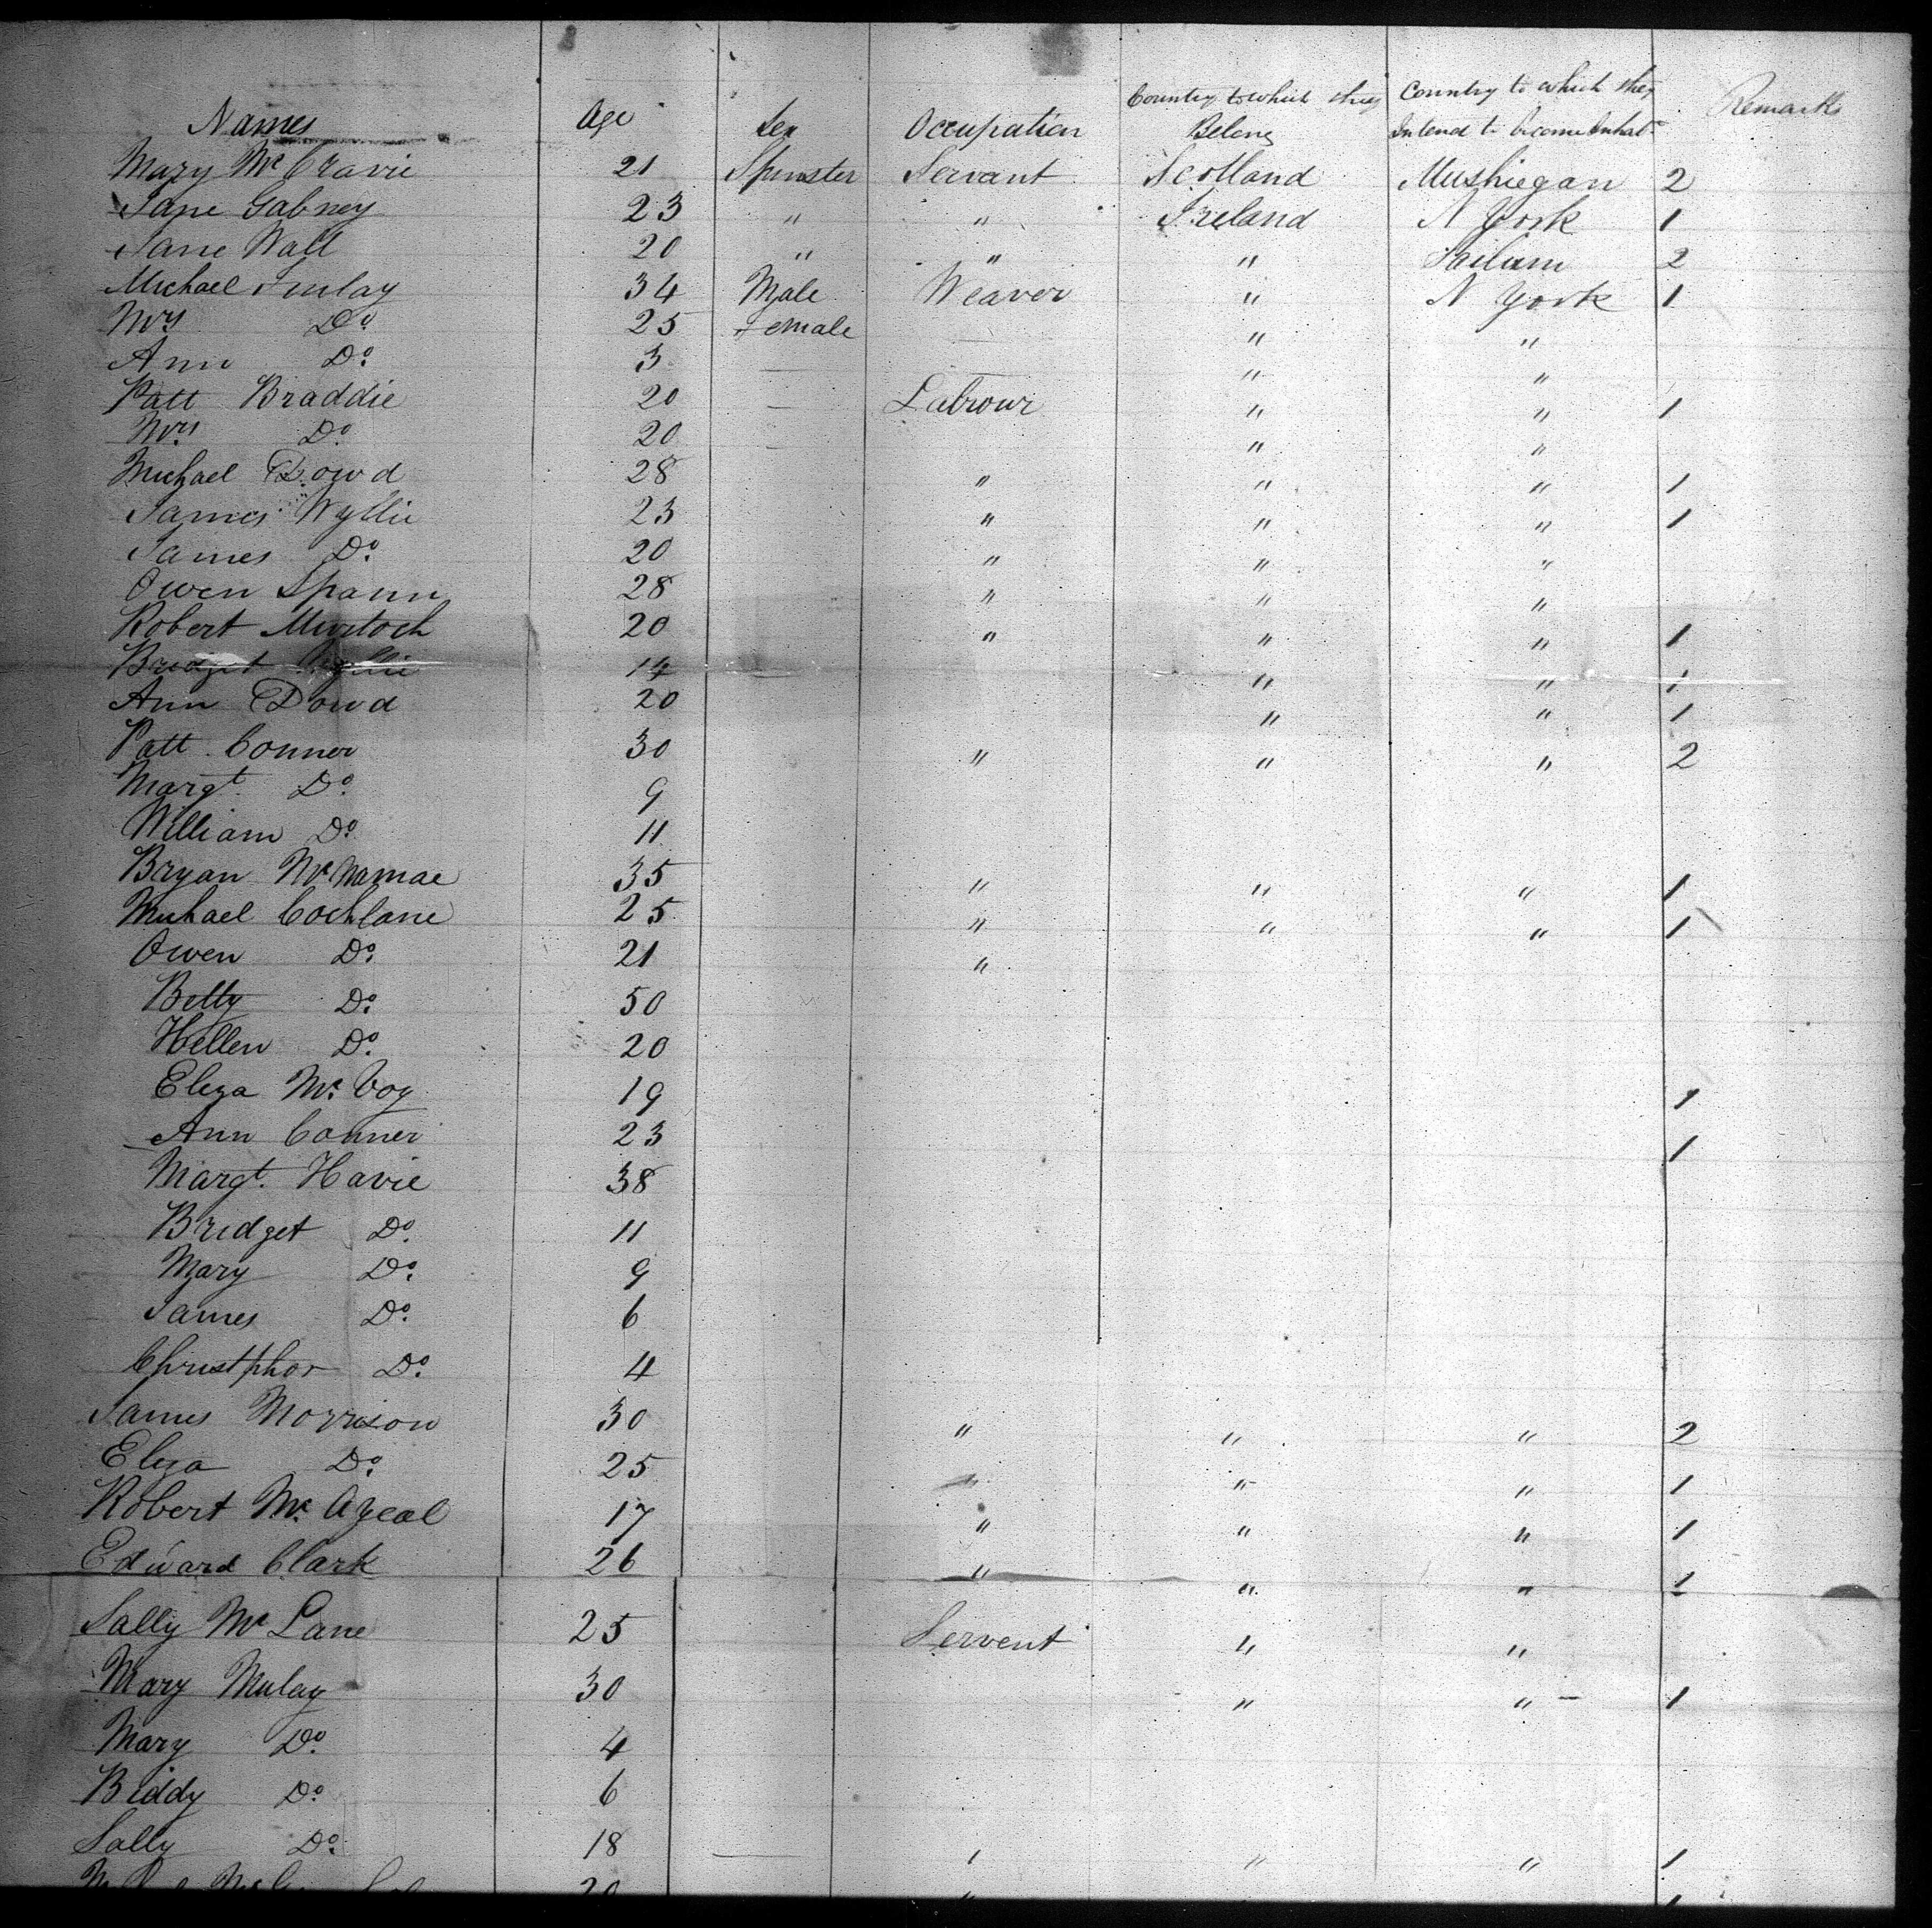 Names Age Sex Occupation Country to which they Belong Country to which they Intend to become Inhabts Remarks
Mary Mc Cravie 21 Spinster Servant Scotland Mushiegan 2
Jane Gabney 23 " " Ireland N York 1
Jane Wall 20 " " " 2
Michael Finlay 34 Male Weaver " N York 1
Mrs Do 25 Female " "
Ann Do 3 — " "
Patt Braddie 20 — Labrour " " 1
Mrs Do 20 — " "
Michael Dowd 28 " " " 1
James Wyllie 23 " " " 1
James Do 20 " " "
Owen Spann 28 " " "
Robert Murtoch 20 " " " 1
Bridget Wyllie 14 " " 1
Ann Dowd 20 " " 1
Patt Conner 30 " " " 2
Margt. Do 9
William Do 11
Bryan Mc Namae 35 " " " 1
Michael Cochlane 25 " " " 1
Owen Do 21 "
Betty Do 50
Hellen Do 20
Eliza Mc Coy 19 1
Ann Conner 23 1
Margt. Havie 38
Bridget Do 11
Mary Do 9
James Do 6
Christphor Do 4
James Morrison 30 " " " 2
Eliza Do 25 " " " 1
Robert Mc 17 " " " 1
Edward Clark 26 " " " 1
Sally Mc Lane 25 Servent " "
Mary Mulay 30 " " — 1
Mary Do 4
Biddy Do 6
Sally Do 18 — " " " 1
20 "